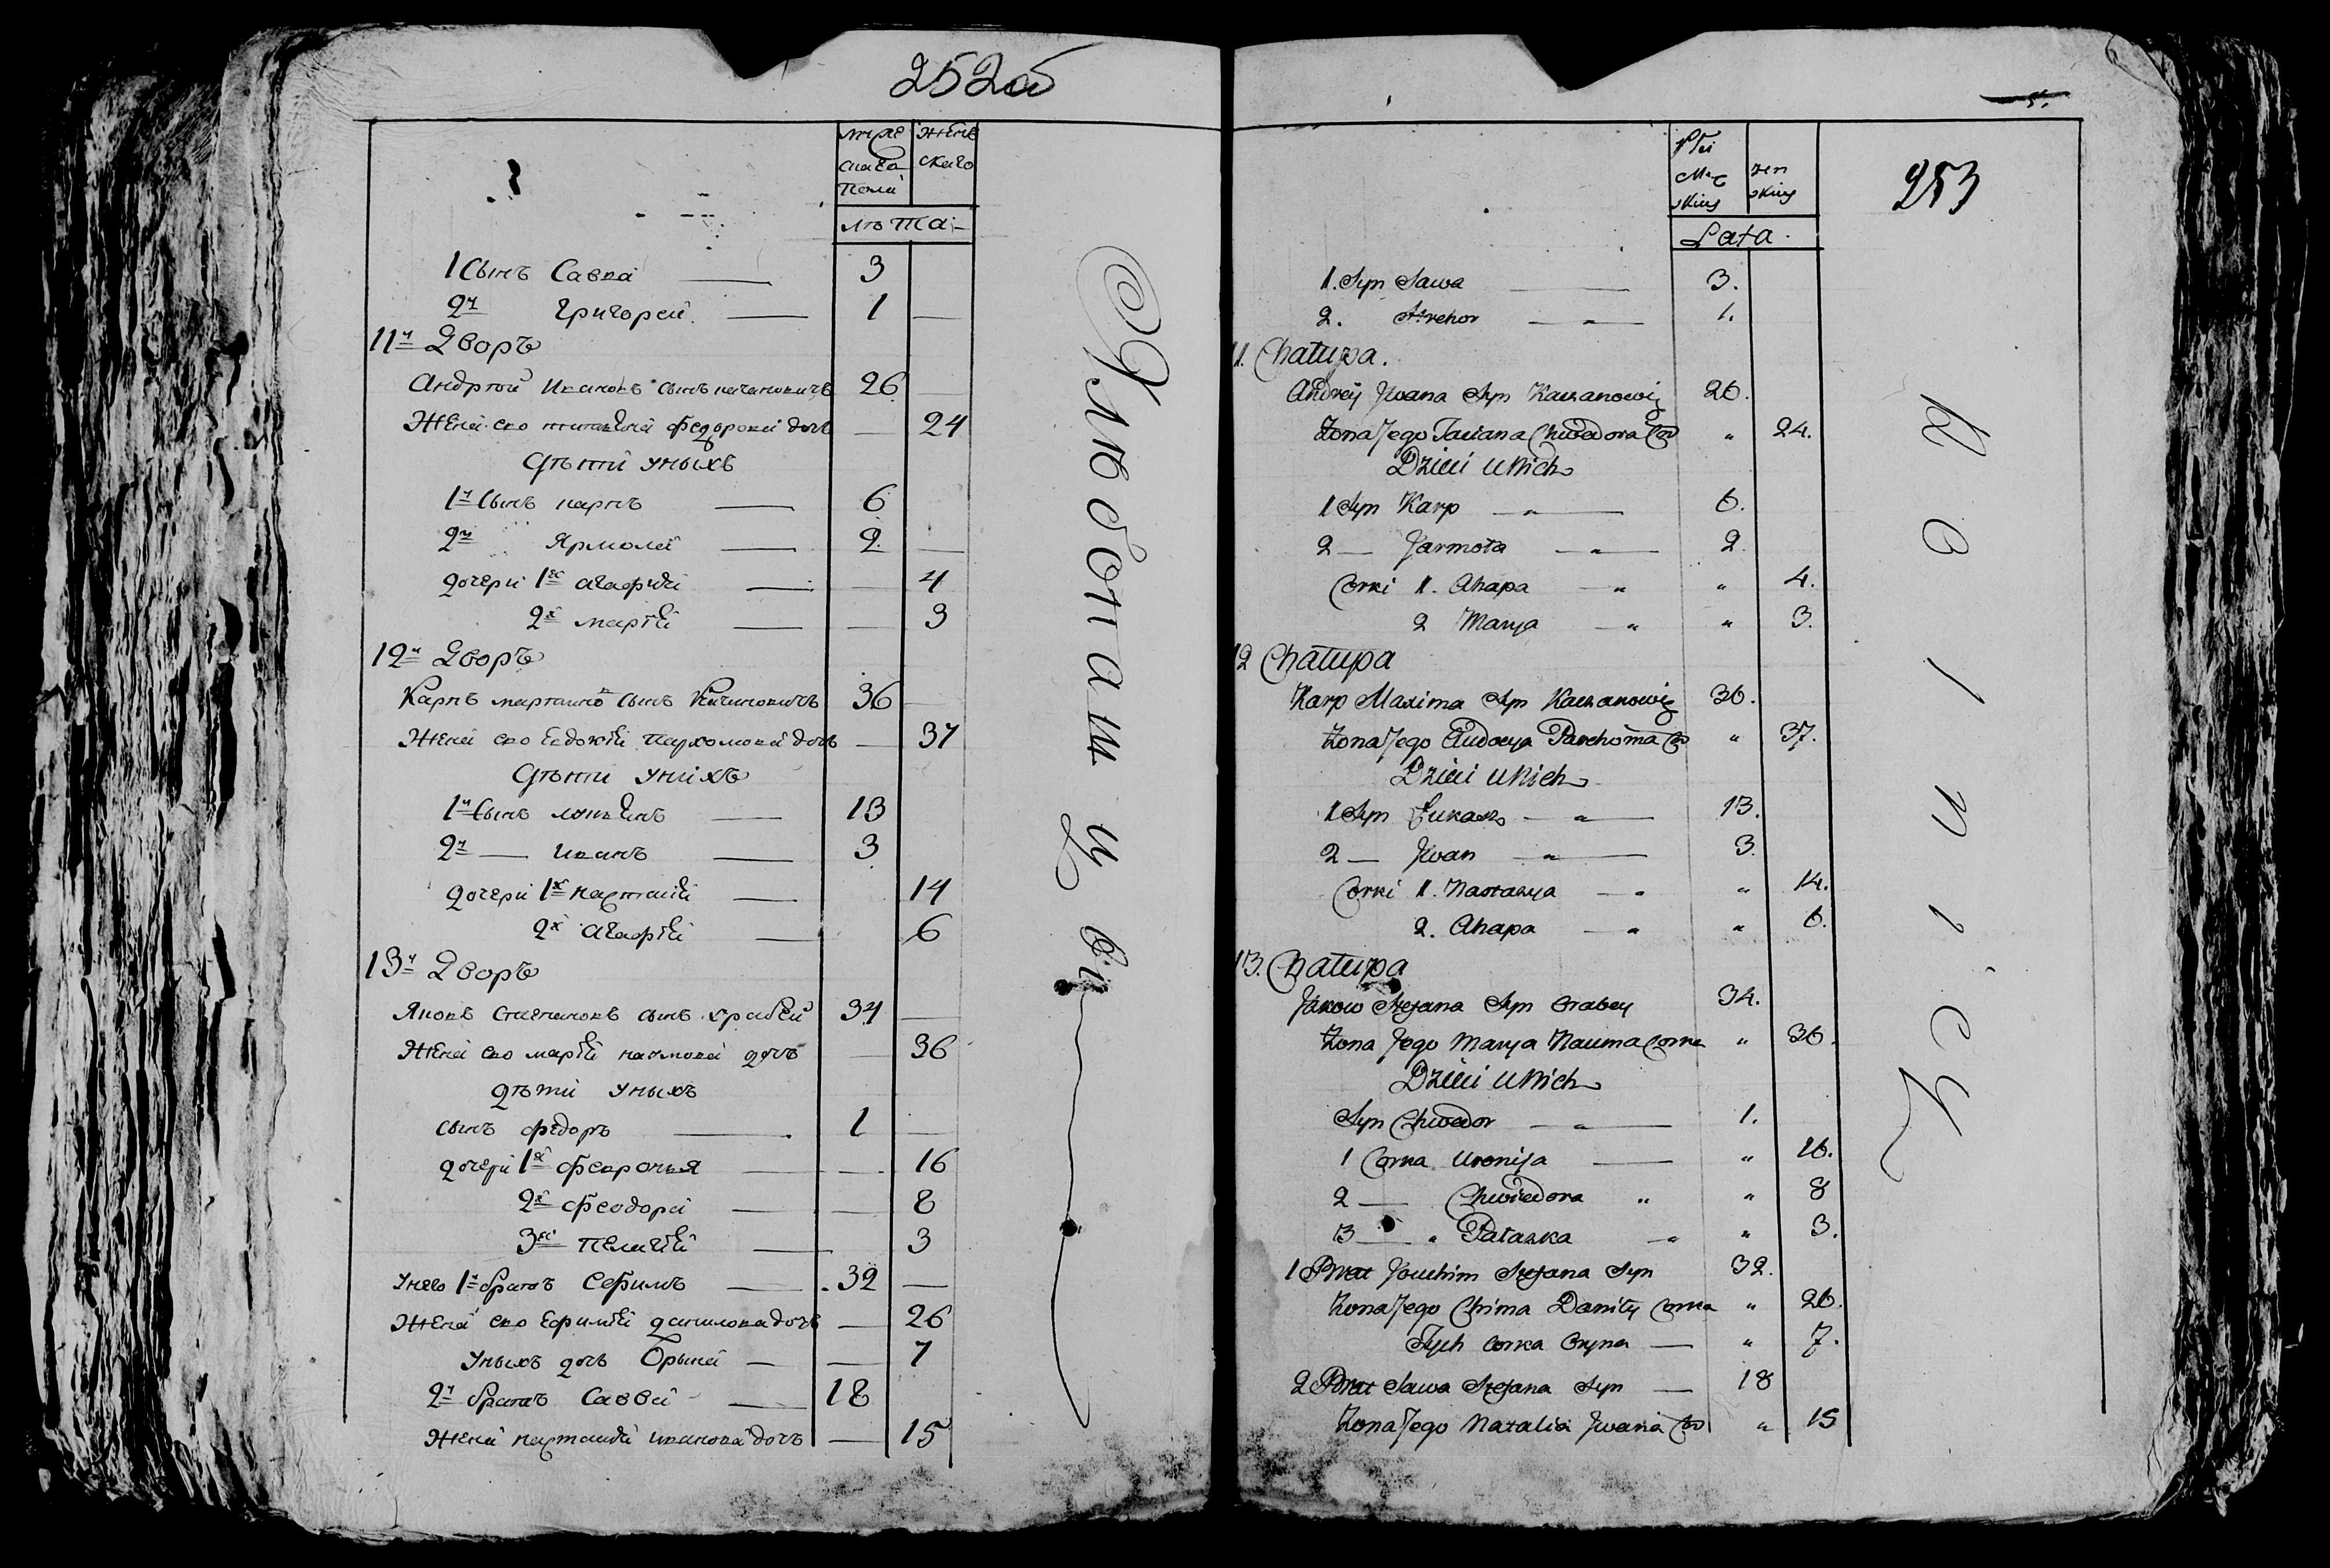 252об
муже
скаго
пола
женъ
скаго
лѣта
1 Сынъ Савка 3
2й Григорей 1
11й Дворъ
Андрѣй Ивановъ сынъ качановичъ 26
Жена его татиана федорова дочь 24
дѣти уныхъ
1й Сынъ карпъ 6
2й Ярмола 2
дочери 1я агафиа 4
2я мариа 3
12й Дворъ
Карпъ сынъ Качановичъ 36
Жена его Евдокиа Пархомова дочь 37
дѣти унихъ
1й Сынъ 13
2й Иванъ 3
дочери 1я 14
2я агафиа 6
13й Дворъ
Яковъ Степановъ сынъ храбей 34
Жена его мариа наумова дочь 36
дѣти уныхъ
сынъ федоръ 1
дочери 1я Февронья 16
2я феодора 8
3я Пелагиа 3
унево 1й братъ 32
Жена его Ефимиа данилова дочь 26
уныхъ дочь Орына 7
2й братъ Савва 18
Жена иванова дочь 15
Plei
Męz
skiey
zen
skiey
Lata
253
1. Syn Sawa 3.
2. Hrehor 1.
11. Chałupa.
Andrey Jwana Syn Kaczanowicz 26.
Zona Jego Taciana Chwedora Cor " 24.
Dzieci u Nich
1 Syn Karp " 6.
2 Jarmoła " 2.
Corki 1. Ahapa " " 4.
2 Marya " " 3.
12 Chałupa
Karp Maxima Syn Kaczanowicz 36.
Zona Jego Eudocya Parchoma Cor " 37.
Dzieci u Nich
1 Syn Łukasz " 13.
2 Jwan " 3.
Corki 1. Nastazya " " 14.
2. Ahapa " " 6.
13. Chałupa
Jakow Stefana Syn Orabey 34.
Zona Jego Marya Nauma Corka " 36.
Dzieci u Nich
Syn Chwedor " 1.
1 Corka Uronija " 16.
2 Chwiedora " " 8
3 " Pałazka " " 3.
1 Brat Jouchim Stefana Syn 32.
Zona Jego Chima Daniły Corka " 26.
Tych Corka Oryna " 7.
2 Brat Sawa Stefana Syn 18
Zona Jego Natalia Jwana Cor " 15